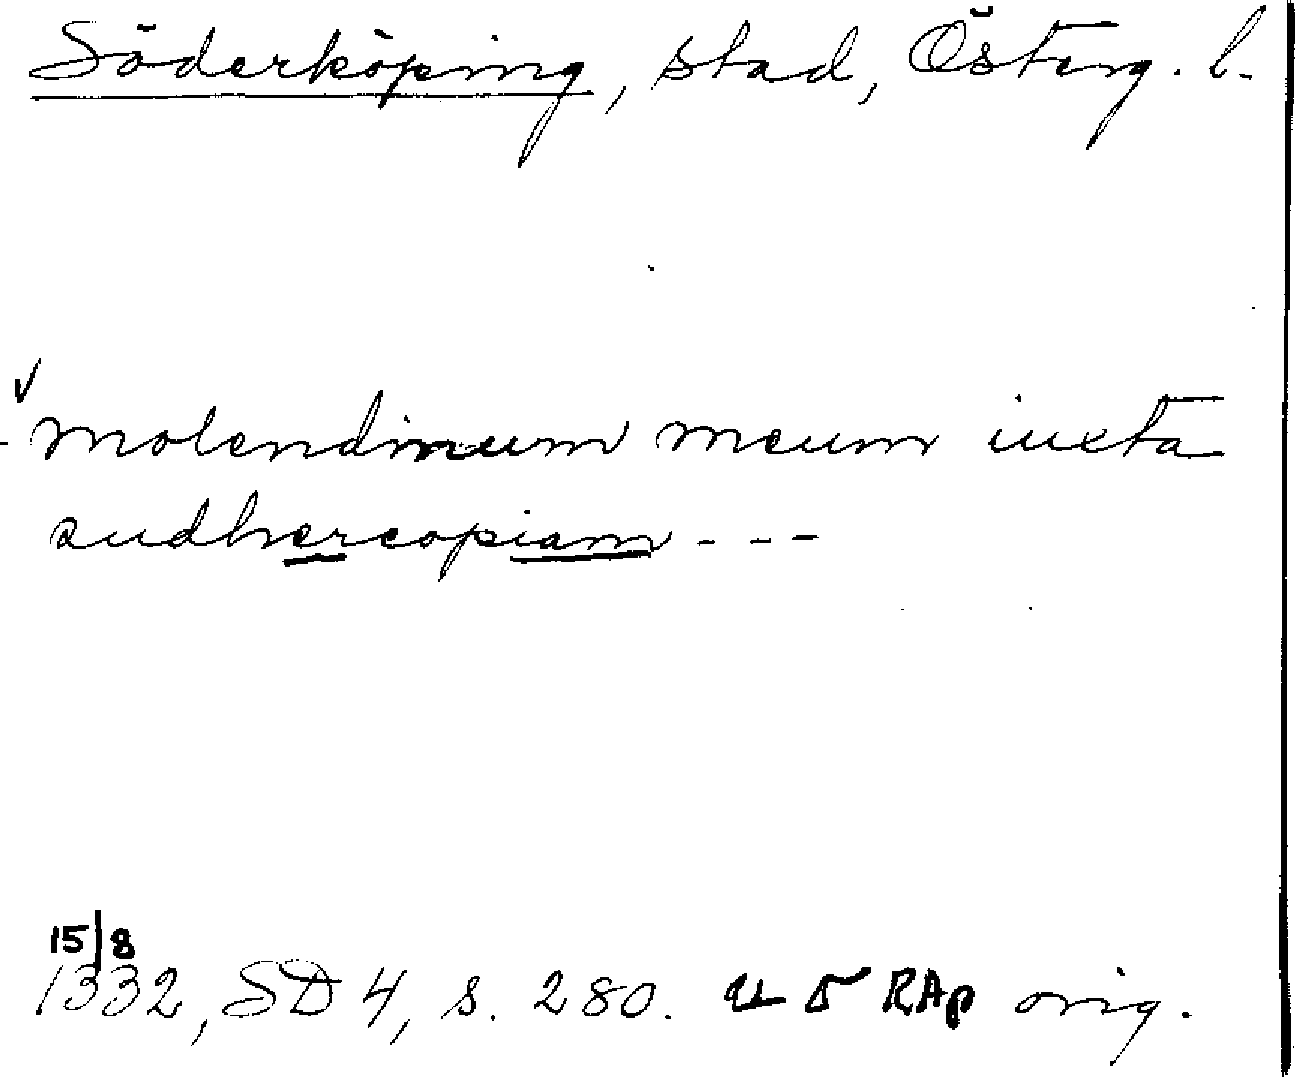 Söderköping, stad, Österg. l.
molendinum meum iuxta
sudhercopiam - - -
15/8
1332, SD 4, s. 280. RAp orig.